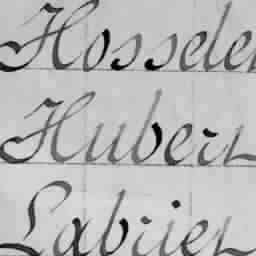 Hossele
Huber
Labrie